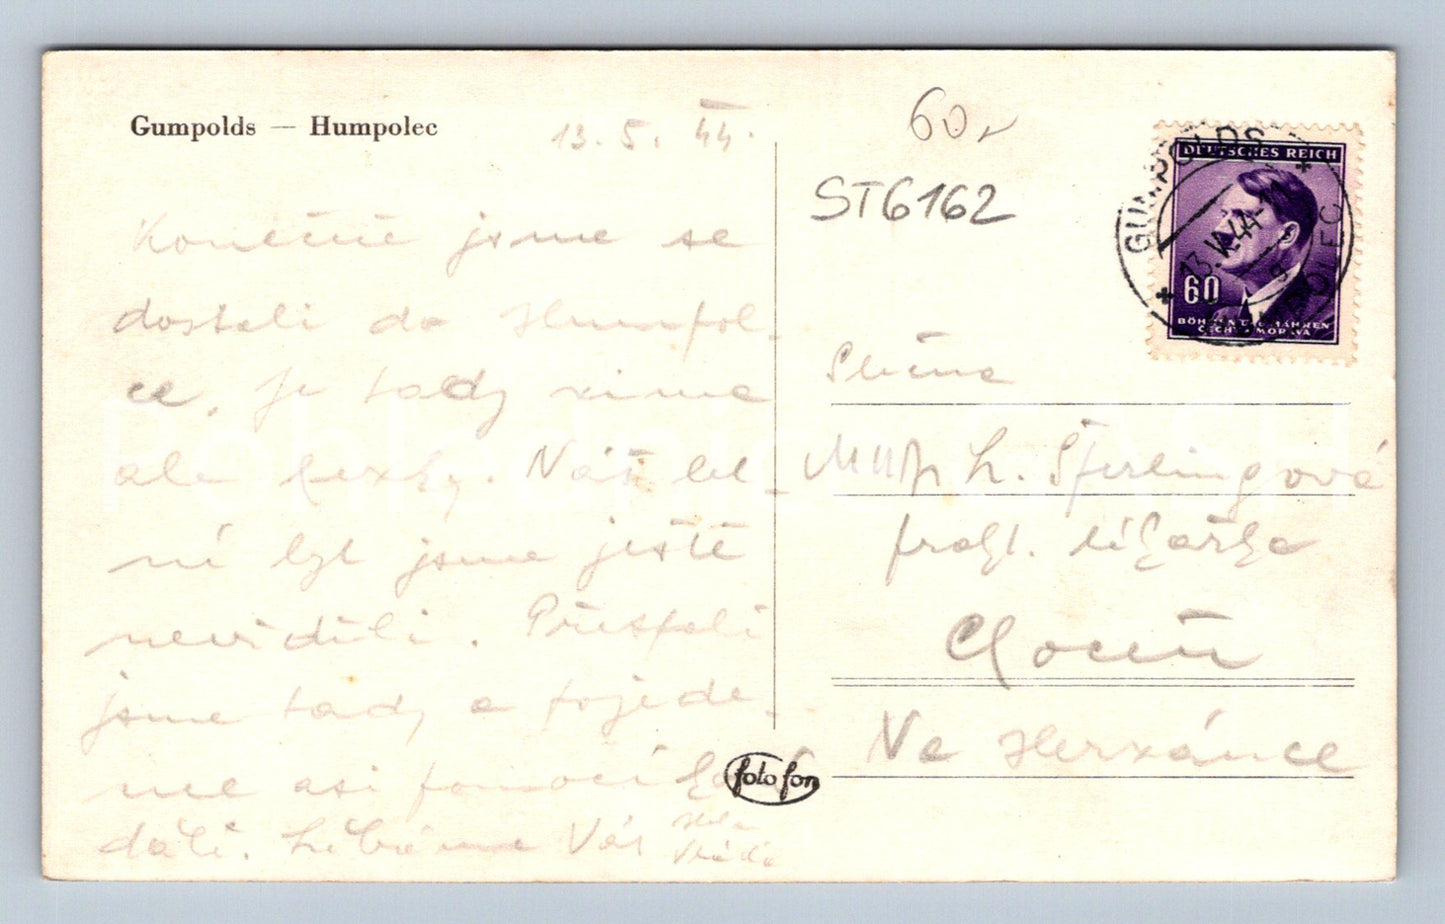 Gumpolds — Humpolec
13. 5. 44.
Konečně jsme se
dostali do Humpol-
ce. Je tady zima
ale hezky. Náš cíl
jsme ještě
neviděli. Přespali
jsme tady a pojede-
me asi pomocí
dál. Líbáme Vás
60,-
ST6162
DEUTSCHES REICH
GUMPOLDS
HUMPOLEC
13.V.44
60
BÖHMEN UND MÄHREN
ČECHY A MORAVA
Slečna
MUDr L. Šterlingová
prakt. lékařka
Choceň
Na Herzánce
foto fon
Pohlednice CASH